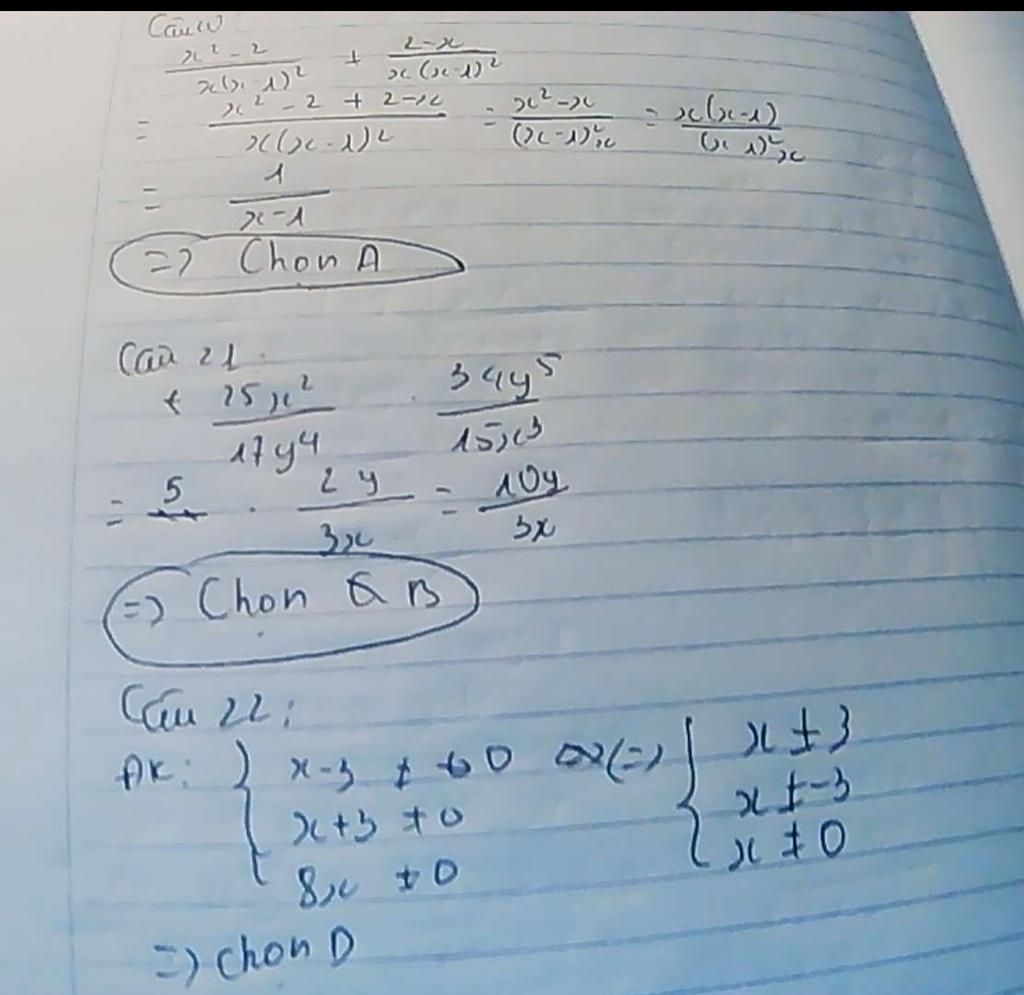 x² - 2 / x(x-1)² + 2-x / x(x-1)²
= x² - 2 + 2-x / x(x-1)² = x² -x / (x-1)²x = x(x-1) / (x 1)²x
= 1 / x-1
=> Chon A
Câu 21.
25x² / 17y⁴ . 34y⁵ / 15x³
= 5 . 2y / 3x = 10y / 3x
=> Chon B
Câu 22:
ĐK: { x-3 ≠ 0 (=> { x ≠ 3
x+3 ≠ 0 x ≠ -3
8x ≠ 0 x ≠ 0
=> chon D